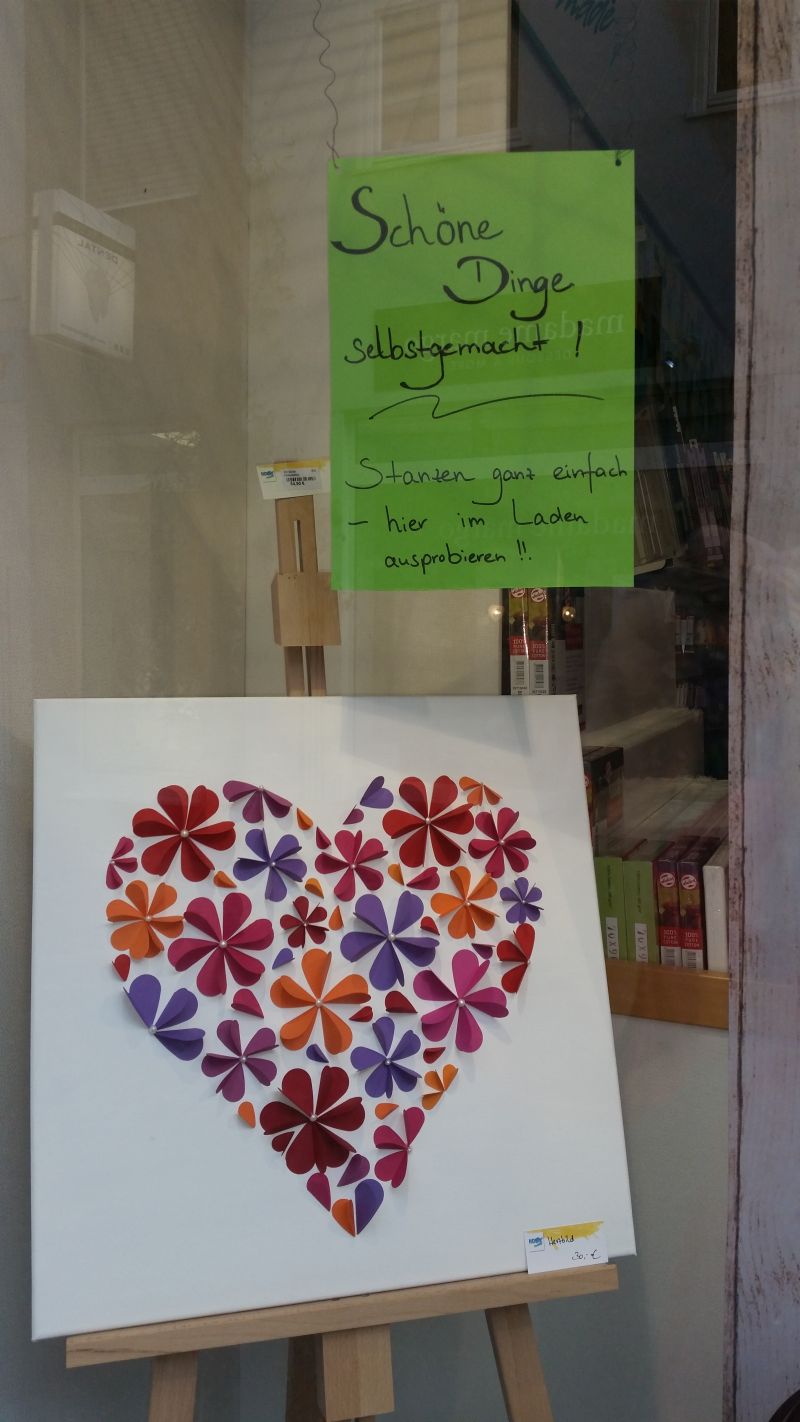 made
Schöne
Dinge
selbstgemacht !
Stanzen ganz einfach
- hier im Laden
ausprobieren !!
madame
DENTAL
Herzbild
30,- €